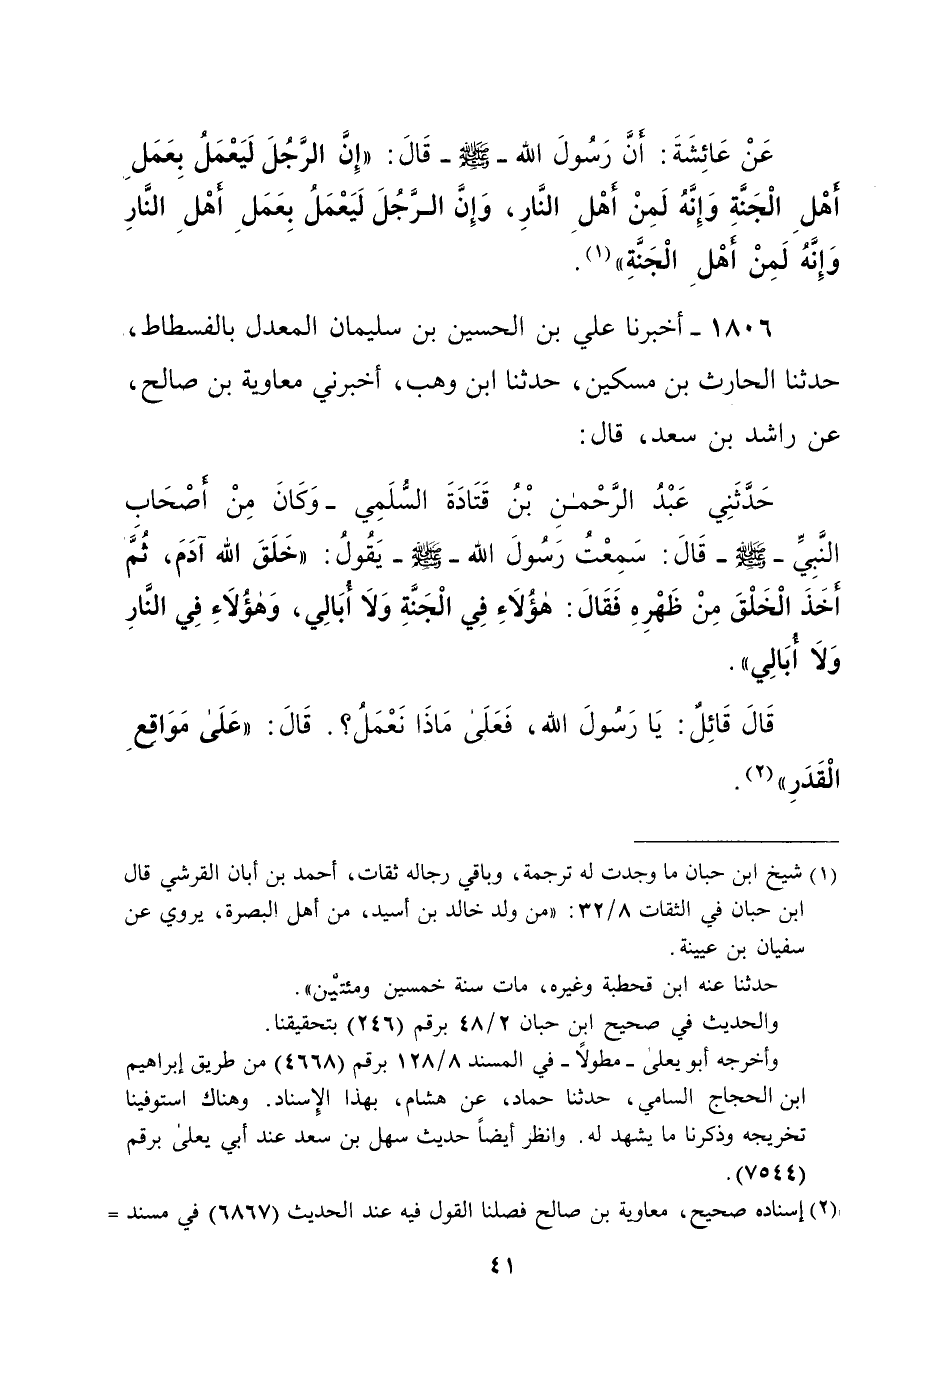 عَنْ عَائِشَةَ: أَنَّ رَسُولَ الله ـ ﷺ ـ قَالَ: «إِنَّ الرَّجُلَ لَيَعْمَلُ بِعَمَلِ
أَهْلِ الْجَنَّةِ وَإِنَّهُ لَمِنْ أَهْلِ النَّارِ، وَإِنَّ الـرَّجُلَ لَيَعْمَلُ بِعَمَلِ أَهْلِ النَّارِ
وَإِنَّهُ لَمِنْ أَهْلِ الْجَنَّةِ»(١).
١٨٠٦ ـ أخبرنا علي بن الحسين بن سليمان المعدل بالفسطاط،
حدثنا الحارث بن مسكين، حدثنا ابن وهب، أخبرني معاوية بن صالح،
عن راشد بن سعد، قال:
حَدَّثَنِي عَبْدُ الرَّحْمٰنِ بْنُ قَتَادَةَ السُّلَمِي ـ وَكَانَ مِنْ أَصْحَابِ
النَّبِيِّ ـ ﷺ ـ قَالَ: سَمِعْتُ رَسُولَ الله ـ ﷺ ـ يَقُولُ: «خَلَقَ الله آدَمَ، ثُمَّ
أَخَذَ الْخَلْقَ مِنْ ظَهْرِهِ فَقَالَ: هٰؤُلَاءِ فِي الْجَنَّةِ وَلَا أُبَالِي، وَهٰؤُلَاءِ فِي النَّارِ
وَلَا أُبَالِي».
قَالَ قَائِلٌ: يَا رَسُولَ الله، فَعَلَىٰ مَاذَا نَعْمَلُ؟. قَالَ: «عَلَىٰ مَوَاقِعِ
الْقَدَرِ»(٢).
(١) شيخ ابن حبان ما وجدت له ترجمة، وباقي رجاله ثقات، أحمد بن أبان القرشي قال
ابن حبان في الثقات ٣٢/٨: «من ولد خالد بن أسيد، من أهل البصرة، يروي عن
سفيان بن عيينة.
حدثنا عنه ابن قحطبة وغيره، مات سنة خمسين ومئتين».
والحديث في صحيح ابن حبان ٤٨/٢ برقم (٢٤٦) بتحقيقنا.
وأخرجه أبو يعلىٰ ـ مطولاً ـ في المسند ١٢٨/٨ برقم (٤٦٦٨) من طريق إبراهيم
ابن الحجاج السامي، حدثنا حماد، عن هشام، بهذا الإسناد. وهناك استوفينا
تخريجه وذكرنا ما يشهد له. وانظر أيضاً حديث سهل بن سعد عند أبي يعلىٰ برقم
(٧٥٤٤).
(٢) إسناده صحيح، معاوية بن صالح فصلنا القول فيه عند الحديث (٦٨٦٧) في مسند =
٤١